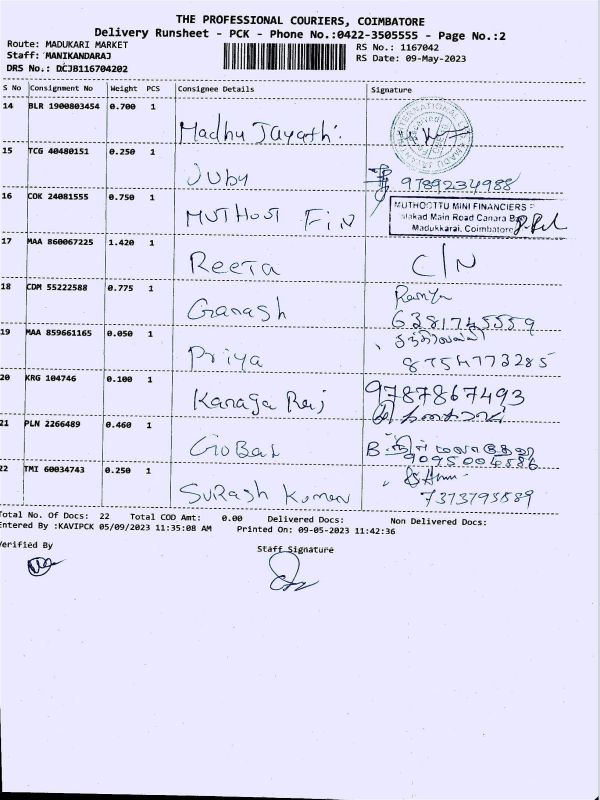 THE PROFESSIONAL COURIERS, COIMBATORE
Delivery Runsheet - PCK - Phone No.:0422-3505555 - Page No.:2
Route: MADUKARI MARKET
RS No.: 1167042
Staff: MANIKANDARAJ
RS Date: 09-May-2023
DRS No.: DCJB116704202
S No Consignment No Weight PCS Consignee Details Signature
14 BLR 1900803454 0.700 1
Madhu Jayathi.
15 TCG 40480151 0.250 1
Juby
9789234988
16 COK 24081555 0.750 1
MUTHOOT FIN
MUTHOOTTU MINI FINANCIERS P
alakad Main Road Canara Ba
Madukkarai, Coimbatore
17 MAA 860067225 1.420 1
Reeta C/N
18 CDM 55222588 0.775 1
Ramya
Ganash 6381745559
19 MAA 859661165 0.050 1
Priya 8754773285
20 KRG 104746 0.100 1
9787867493
Kanaga Raj
21 PLN 2266489 0.460 1
GoBal B.
9095004586
22 TMI 60034743 0.250 1
Surash Kumar 7373795889
Total No. Of Docs: 22 Total COD Amt: 0.00 Delivered Docs: Non Delivered Docs:
Entered By :KAVIPCK 05/09/2023 11:35:08 AM Printed On: 09-05-2023 11:42:36
Verified By
Staff Signature